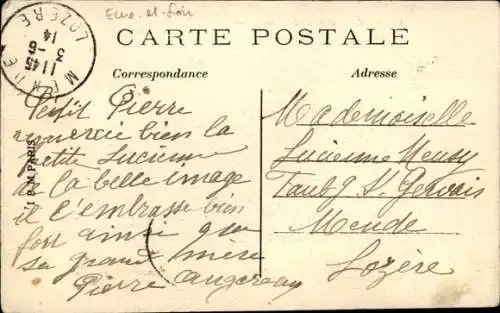 Eure-et-Loir
MENDE
11 45
3 - 6
14
LOZERE
CARTE POSTALE
Correspondance
Adresse
Petit Pierre
remercie bien la
petite Lucienne
de la belle image
il l'embrasse bien
fort ainsi que
sa grand mère
Pierre Augereau
J.P.M PARIS
Mademoiselle
Lucienne
Faubg St Gervais
Mende
Lozère